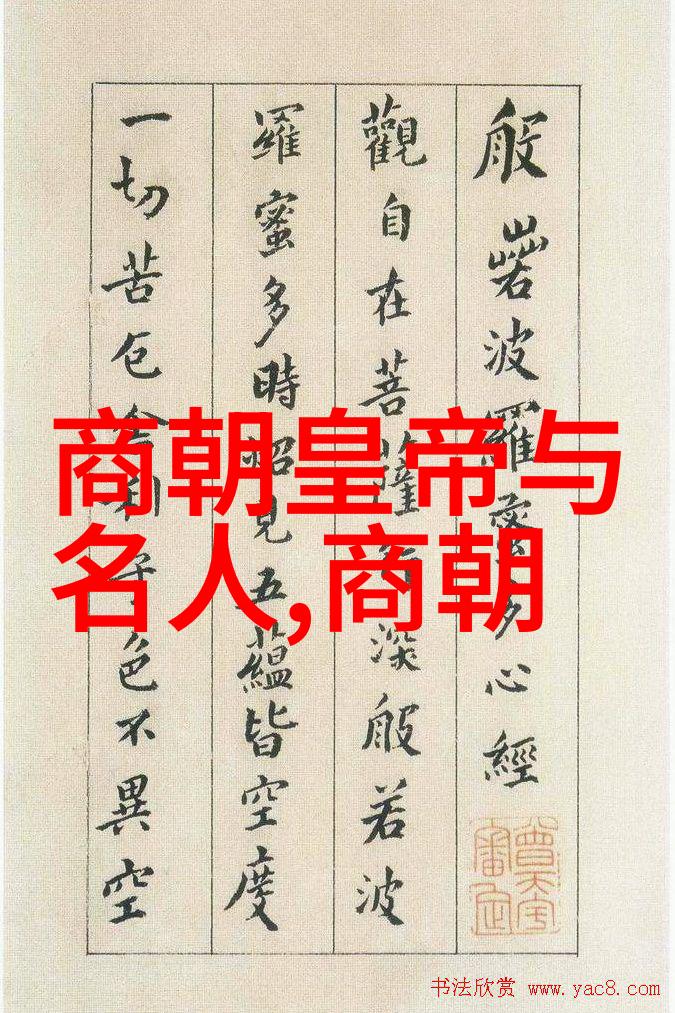 般若波羅蜜多心經
觀自在菩薩行深般若波
羅蜜多時照見五蘊皆空度
一切苦厄舍利子色不異空
商朝皇帝与
名人,商朝
书法欣赏 www.yac8.com